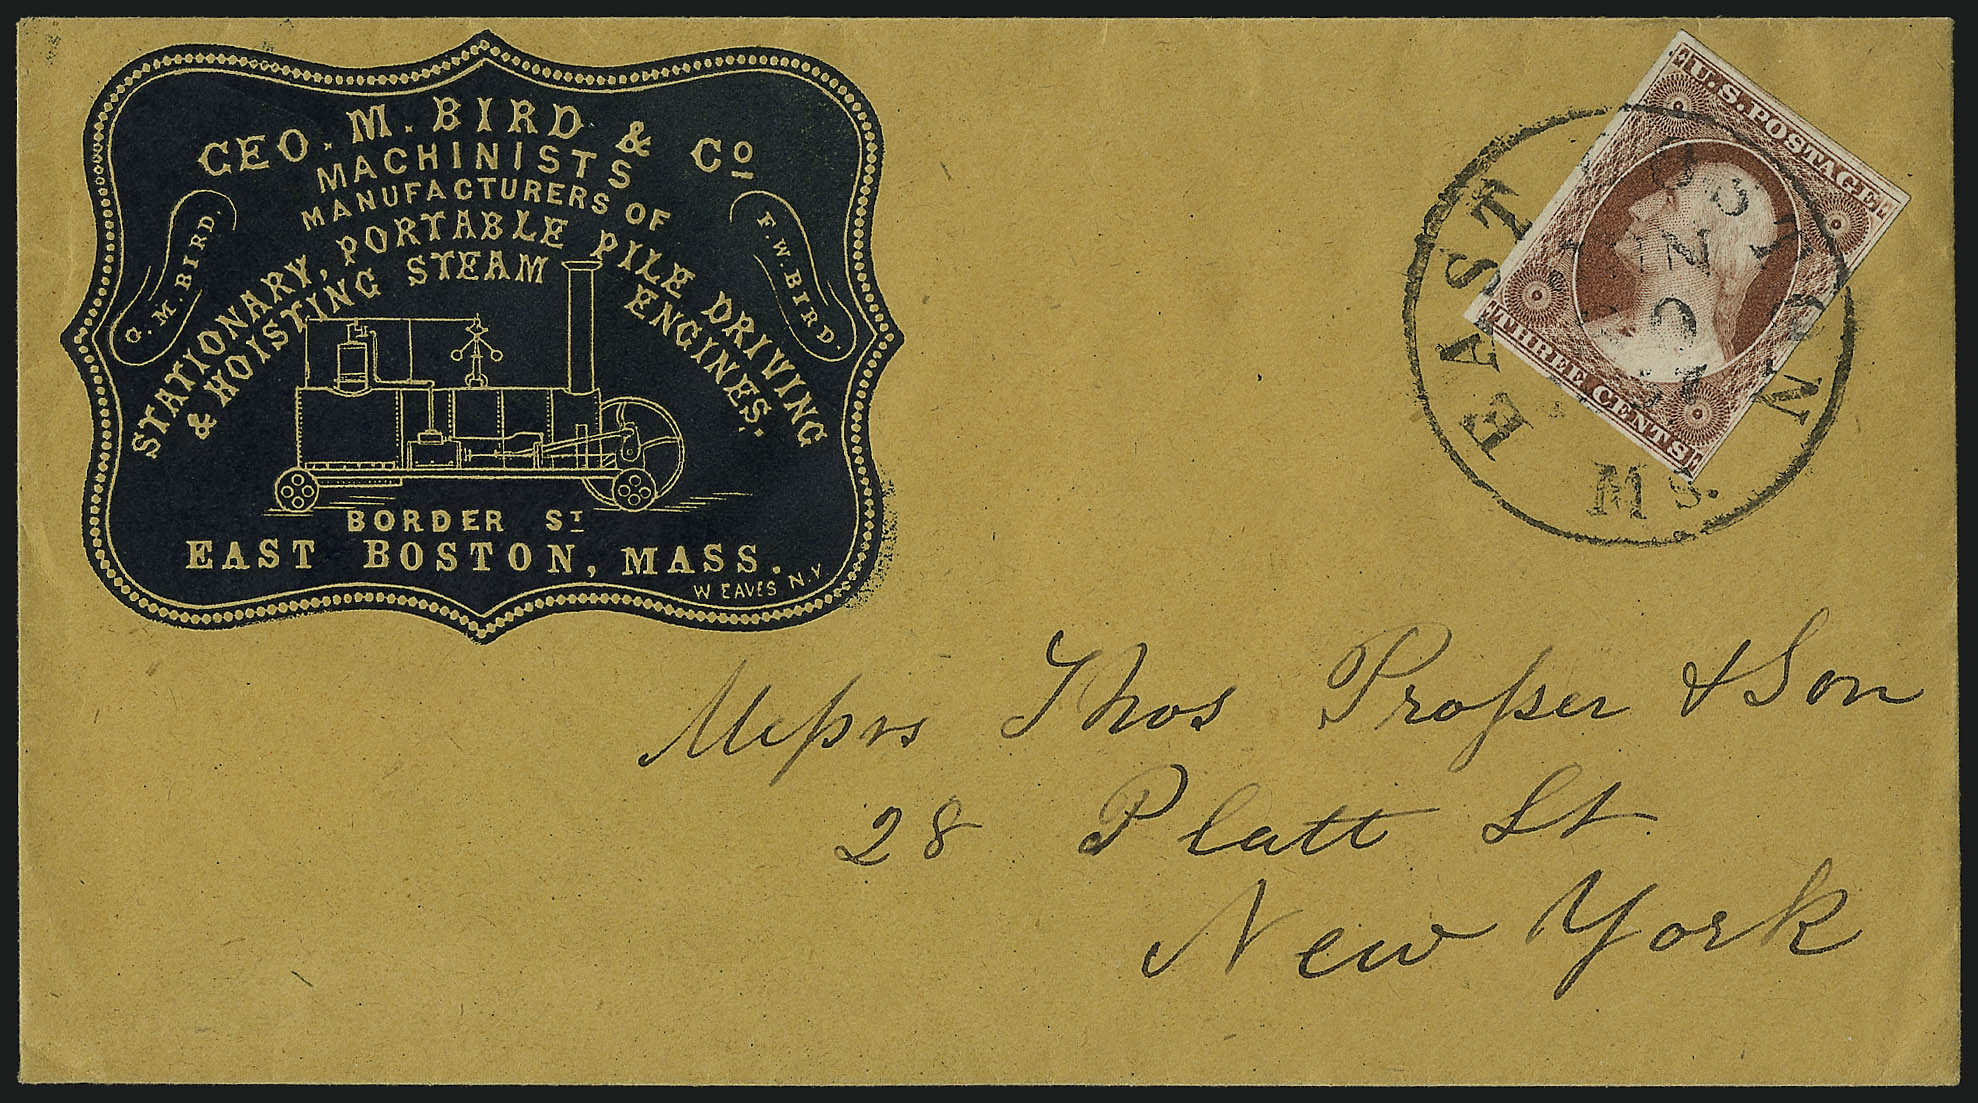 GEO. M. BIRD & Co
MACHINISTS
MANUFACTURERS OF
STATIONARY, PORTABLE PILE DRIVING
& HOISTING STEAM ENGINES.
G. M. BIRD.
F. W. BIRD.
BORDER ST
EAST BOSTON, MASS.
W EAVES N.Y.
U.S. POSTAGE
THREE CENTS
EAST BOSTON
Ms.
Messrs Thos Prosser & Son
28 Platt St
New York